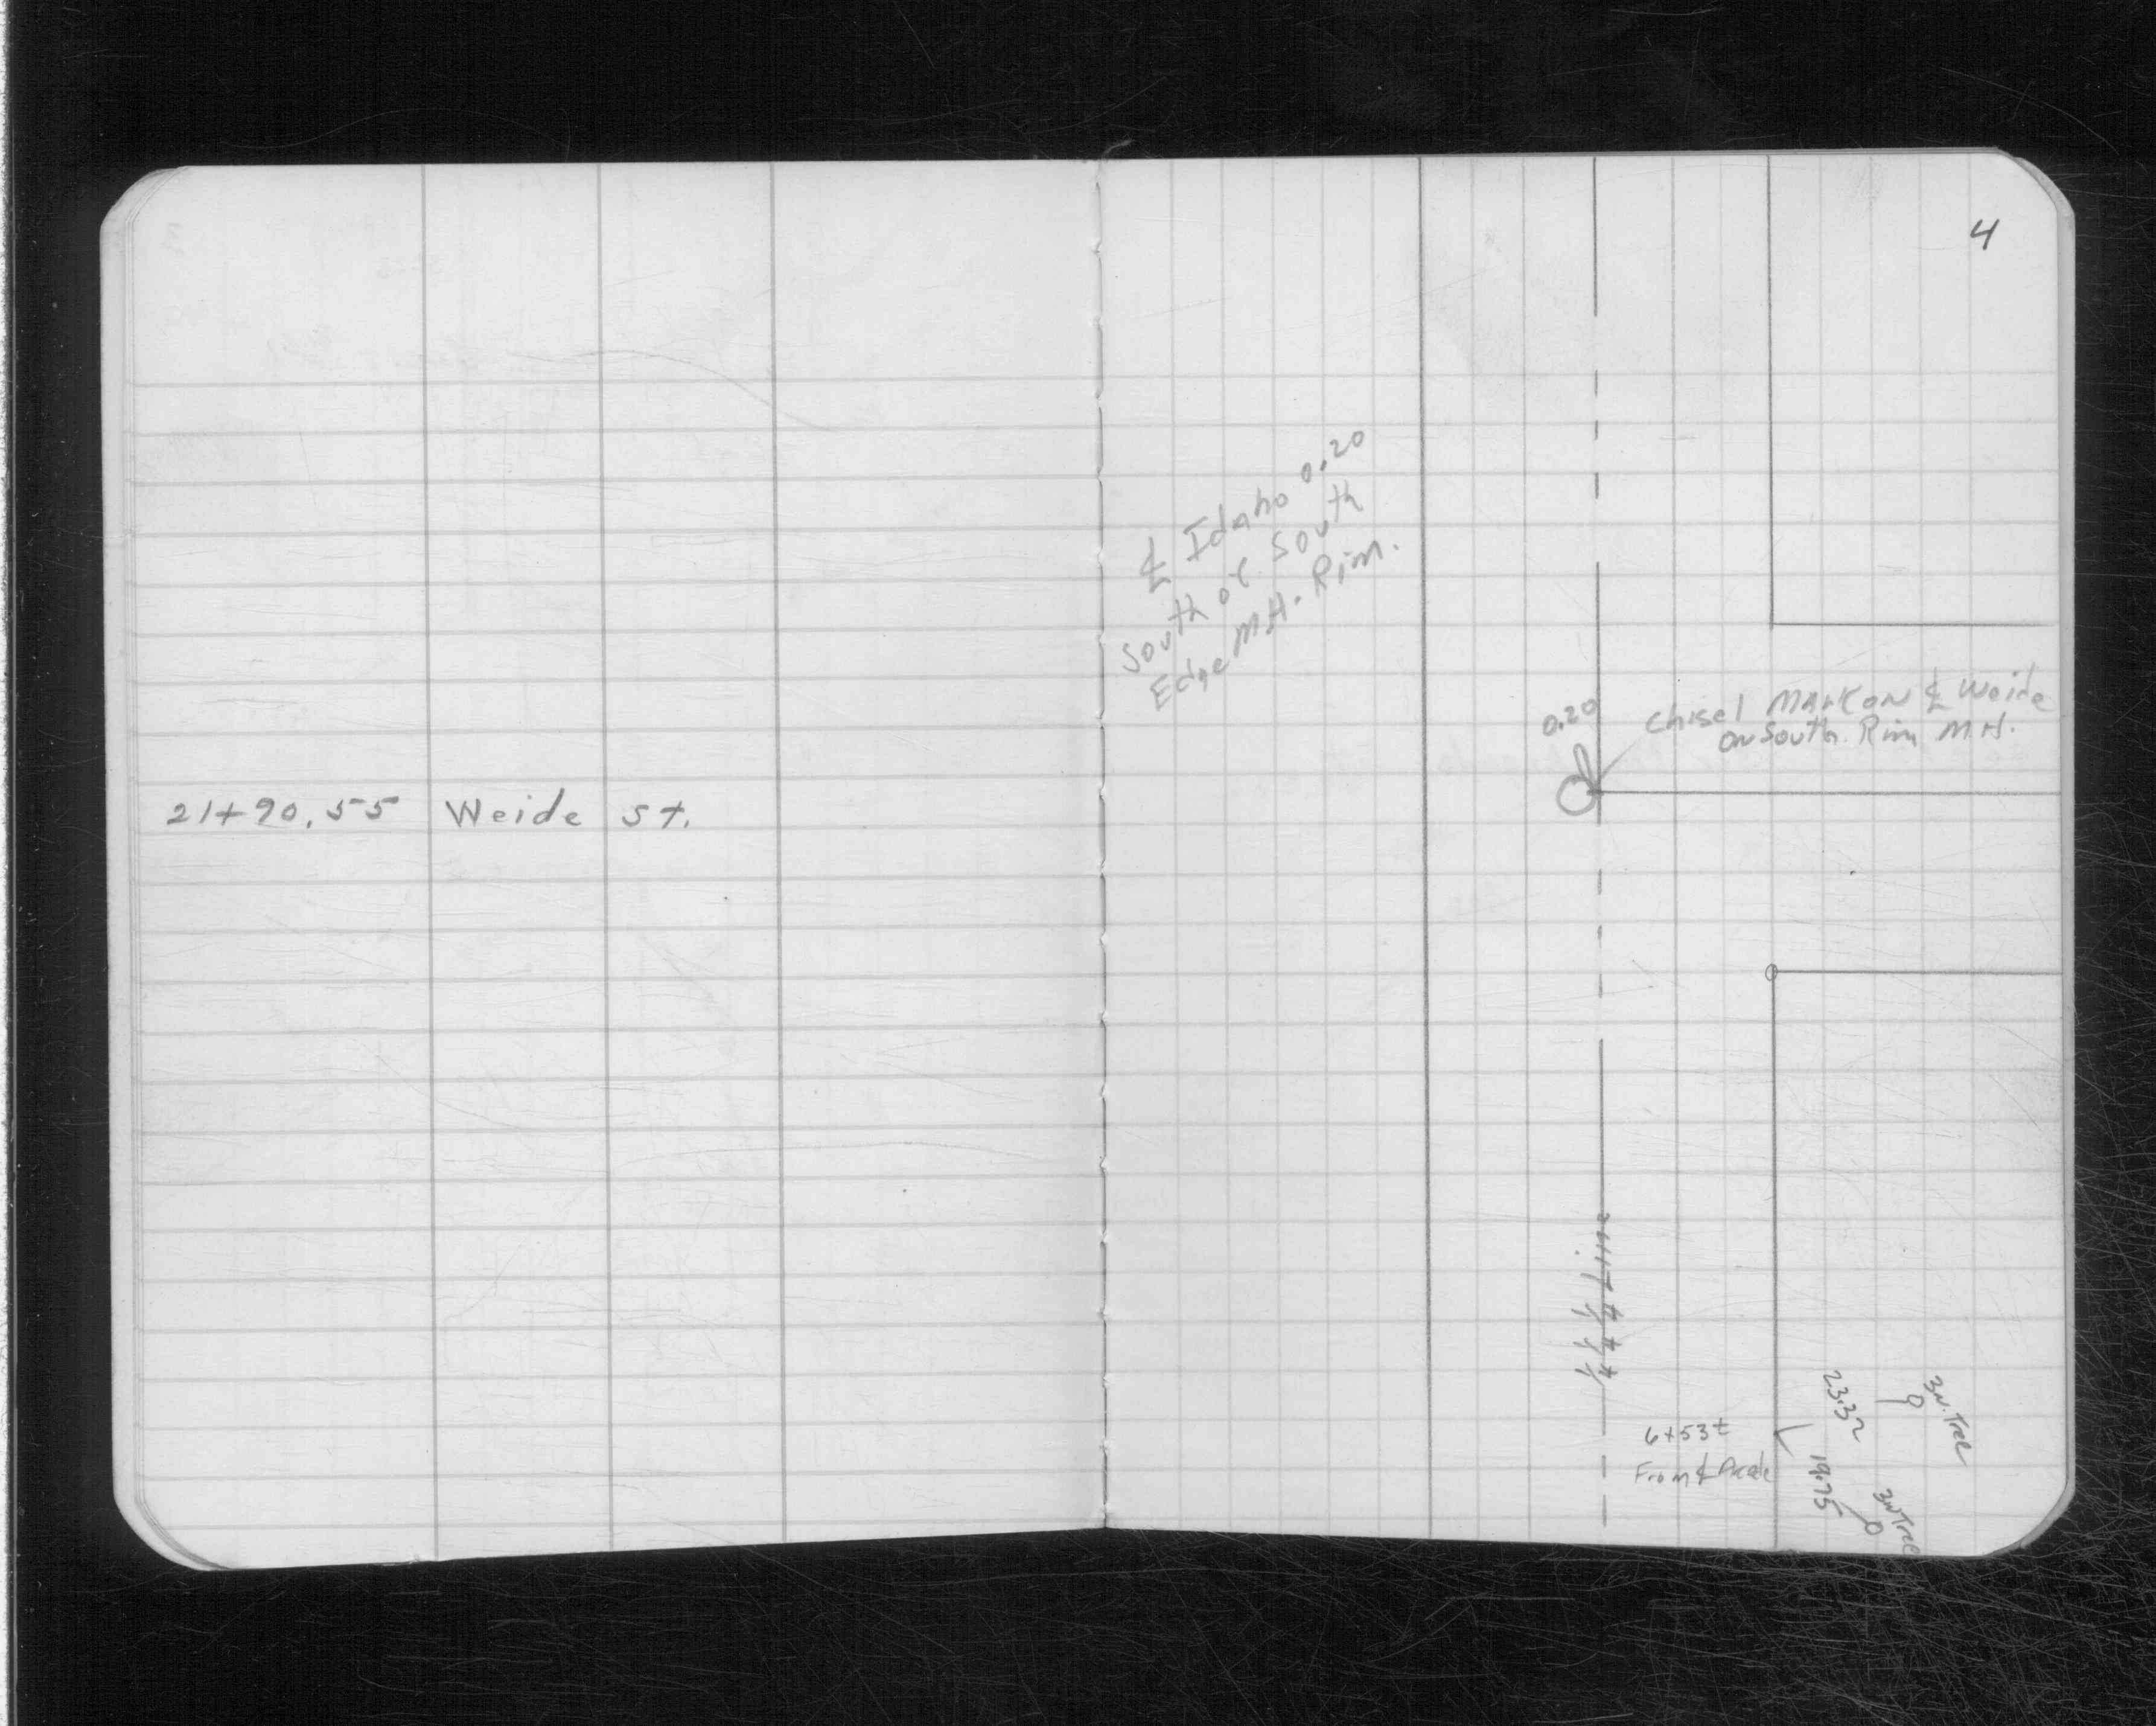 4
21+90.55 Weide St.
℄ Idaho 0.20
South of South
Edge M.H. Rim.
0.20
Chisel Mark on ℄ Weide
on South Rim M.H.
23.32
3N. Tree
6+53±
From ℄
19.75
3N Tree